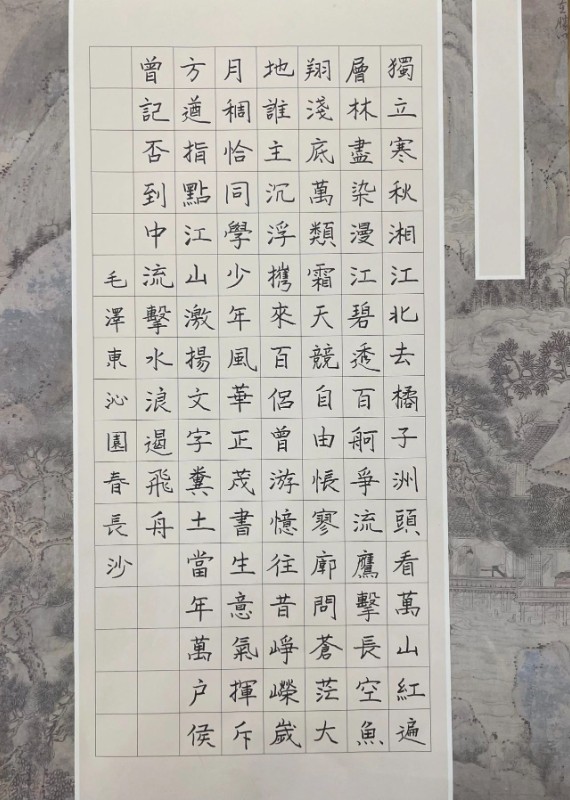 獨立寒秋湘江北去橘子洲頭看萬山紅遍
層林盡染漫江碧透百舸爭流鷹擊長空魚
翔淺底萬類霜天競自由悵寥廓問蒼茫大
地誰主沉浮攜來百侶曾游憶往昔崢嶸歲
月稠恰同學少年風華正茂書生意氣揮斥
方遒指點江山激揚文字糞土當年萬户侯
曾記否到中流擊水浪遏飛舟
毛澤東沁園春長沙